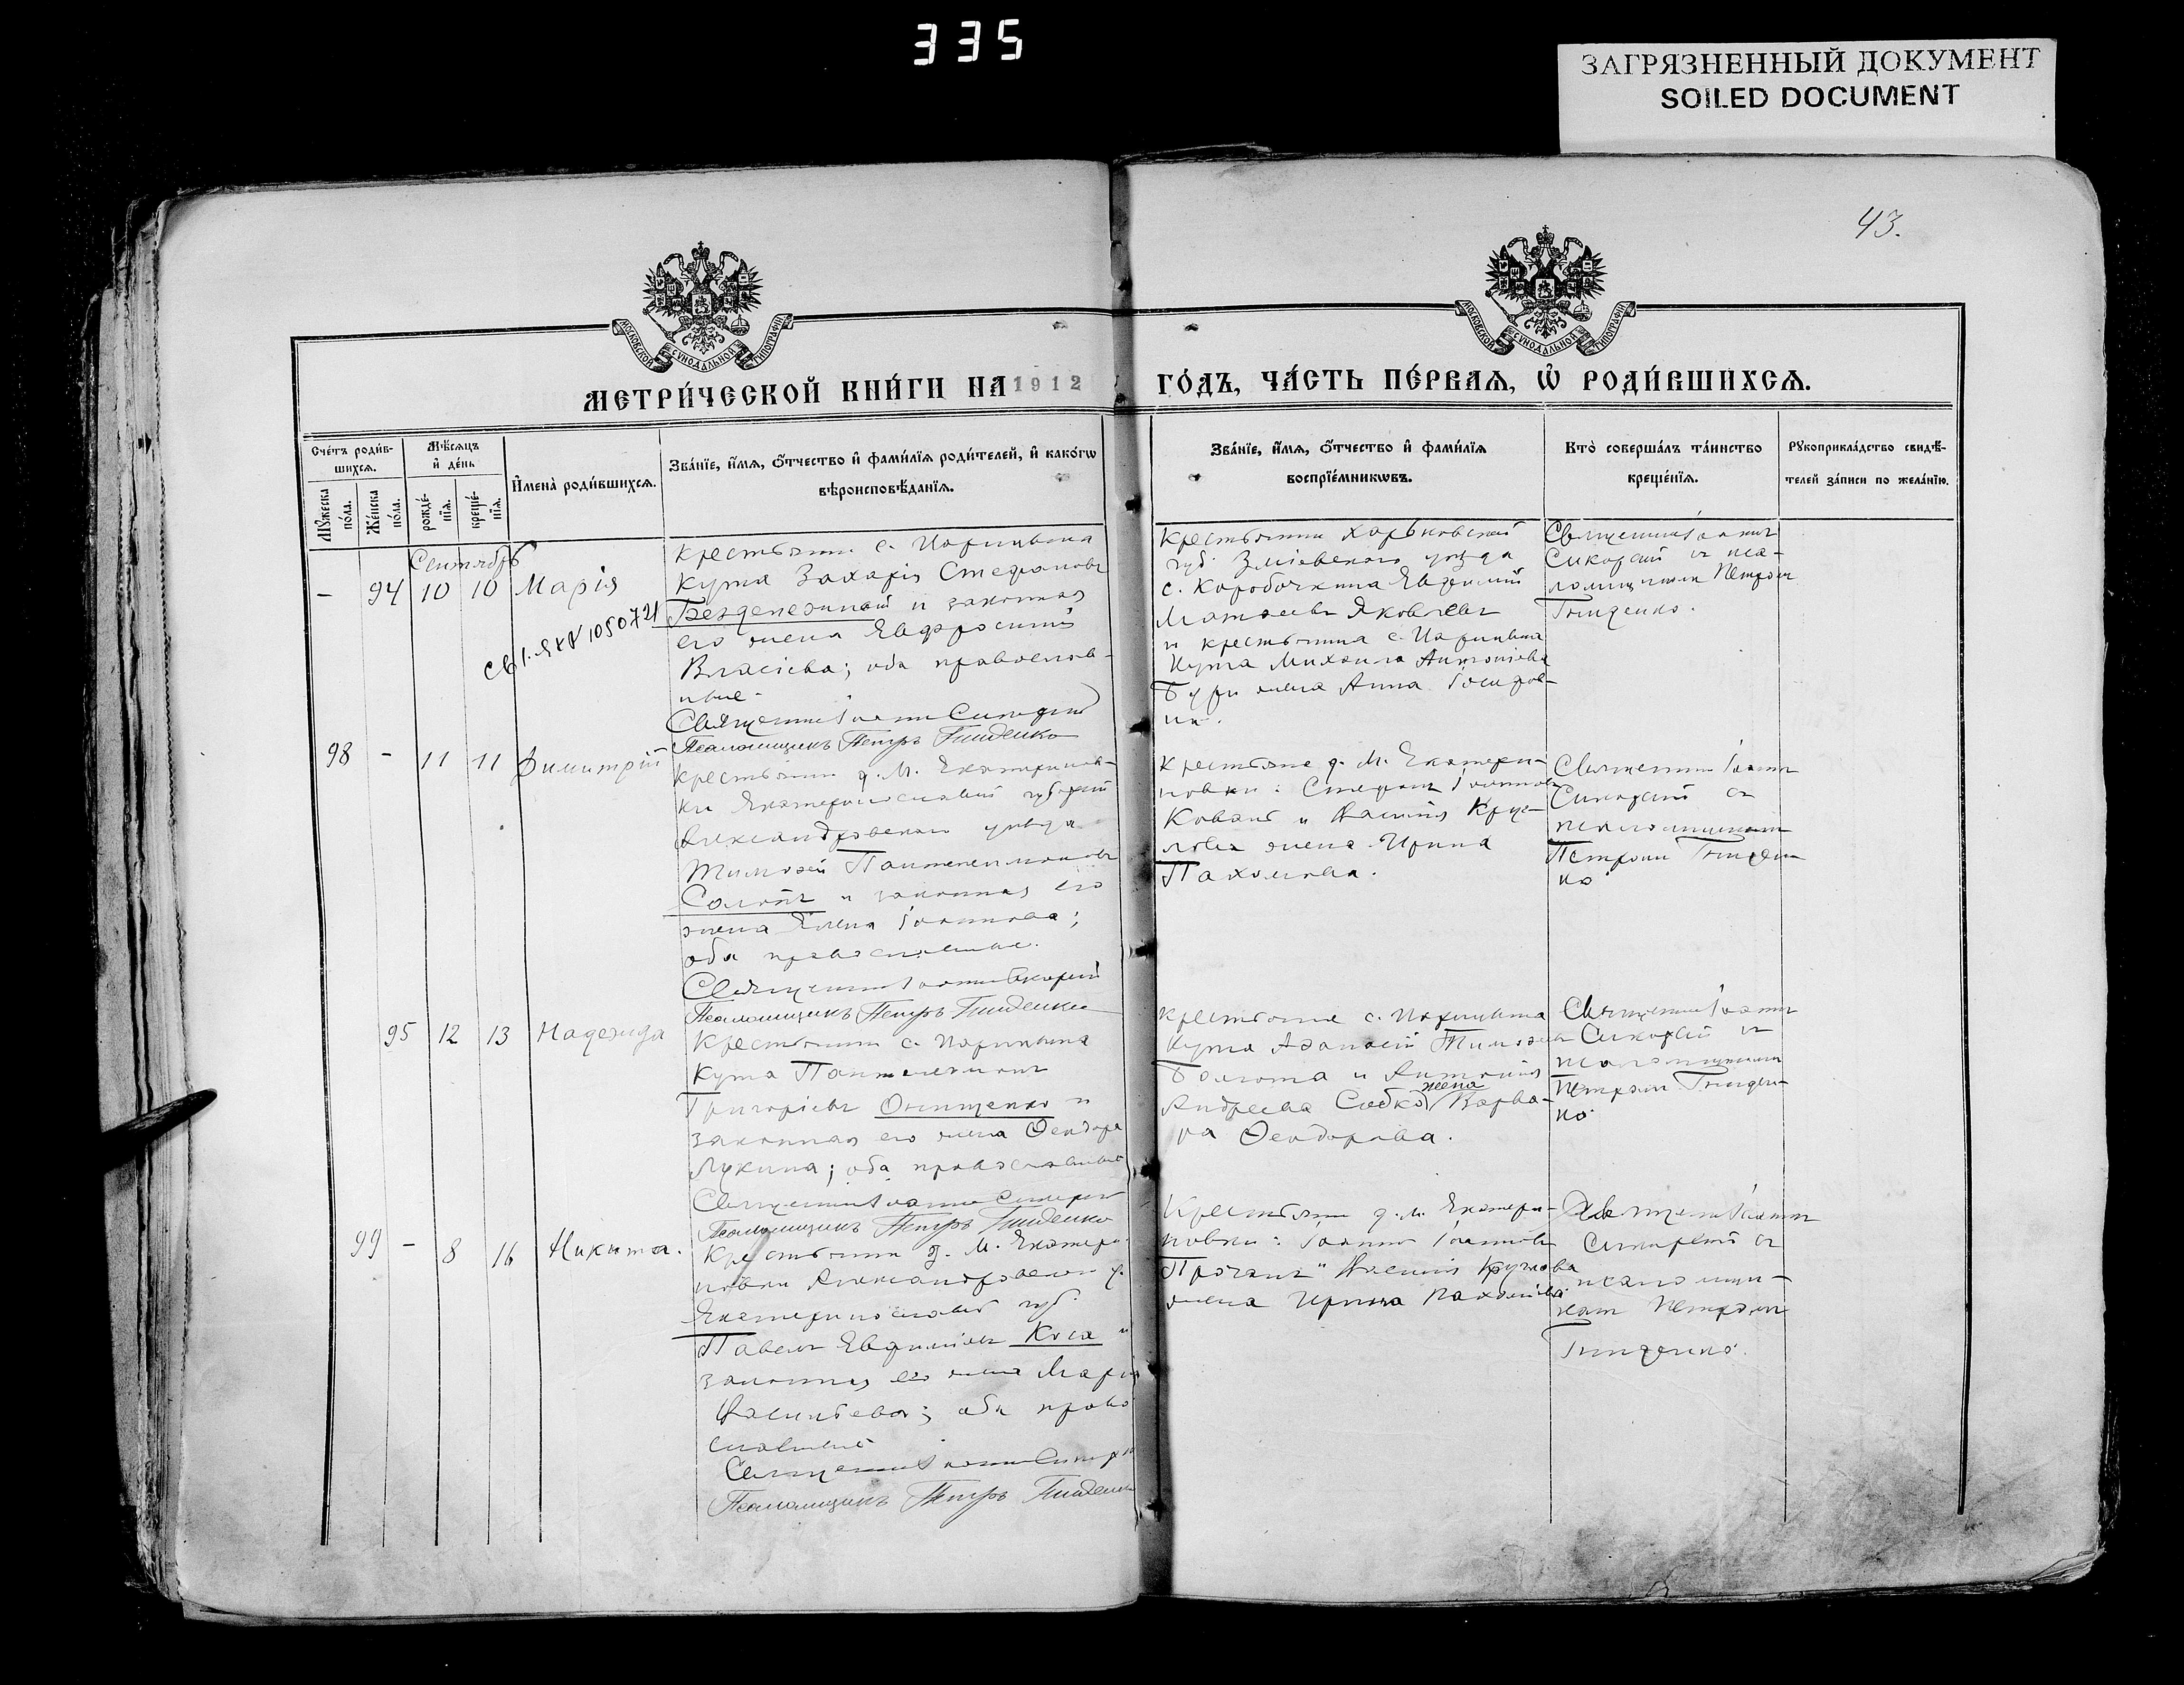 335
ЗАГРЯЗНЕННЫЙ ДОКУМЕНТ
SOILED DOCUMENT
43.
МОСКОВСКОЙ СУНОДАЛЬНОЙ ТИПОГРАФІИ
МОСКОВСКОЙ СУНОДАЛЬНОЙ ТИПОГРАФІИ
МЕТРИ́ЧЕСКОЙ КНИ́ГИ НА 1912 ГО́ДЪ, ЧА́СТЬ ПЕ́РВАѦ, Ѡ҆ РОДИ́ВШИХСѦ.
Сче́тъ роди́в-
шихсѧ.
Мꙋ́жеска по́ла.
Же́нска по́ла.
Мѣ́сѧцъ
и҆ де́нь
рожде́-
нїѧ.
креще́-
нїѧ.
И҆мена̀ роди́вшихсѧ.
Зва́нїе, и҆́мѧ, ѻ҆́тчество и҆ фами́лїѧ роди́телей, и҆ како́гѡ
вѣроисповѣ́данїѧ.
Зва́нїе, и҆́мѧ, ѻ҆́тчество и҆ фами́лїѧ
воспрїе́мникѡвъ.
Кто̀ соверша́лъ та́инство
креще́нїѧ.
Рꙋкоприкла́дство свидѣ́-
телей за́писи по жела́нїю.
Сентябрь
– 94 10 10 Марія
св I-ЯК № 1050721
Крестьянин с. Царицына
Кута Захарія Стефановъ
Безденежный и законная
его жена Евфросинія
Власіева; оба православ-
ные
Священник Іоанн Сикорскій
Псаломщикъ Петръ Гниденко
Крестьянин Харьковской
губ. Зміевского уезда
с. Коробочкина Евфимій
Матфеевъ Яковлевъ
и крестьянина с. Царицына
Кута Михаила Антоніева
жена Анна Іосифов-
на.
Священник Іоаннъ
Сикорскій съ пса-
ломщиком Петром
Гниденко.
98 – 11 11 Димитрій
Крестьянин д. М. Екатеринов-
ки Екатеринославской губерніи
Александровского уезда
Тимофей Пантелеимоновъ
и законная его
жена Елена Іоаннова;
оба православные.
Священник Іоанн Сикорскій
Псаломщикъ Петръ Гниденко
Крестьяне д. М. Екатери-
новки: Стефанъ Іоанновъ
и Василія
жена Ирина
Пахомова.
Священник Іоаннъ
Сикорскій съ
псаломщиком
Петром Гниден-
ко
95 12 13 Надежда
Крестьянин с. Царицына
Кута Пантелеимонъ
Григоріевъ Онищенко и
законная его жена Феодора
Лукина; оба православные
Священник Іоанн Сикорскій
Псаломщикъ Петръ Гниденко
Крестьяне с. Царицына
Кута Афанасій
Болюта и Антонія
Андреева жена Варва-
ра Феодорова.
Священник Іоаннъ
Сикорскій съ
псаломщиком
Петром Гниден-
ко
99 – 8 16 Никита.
Крестьянин д. М. Екатери-
новки Александровского у.
Екатеринославской губ.
Павелъ Евфиміевъ Коса и
законная его жена Марія
Васильева; оба право
славные
Священник Іоанн Сикорскій
Псаломщикъ Петръ Гниденко
Крестьяне д. М. Екатери-
новки: Іоаннъ Іоанновъ
и Василія
жена Ирина Пахомова
Священник Іоаннъ
Сикорскій съ
псаломщи-
ком Петром
Гниденко.